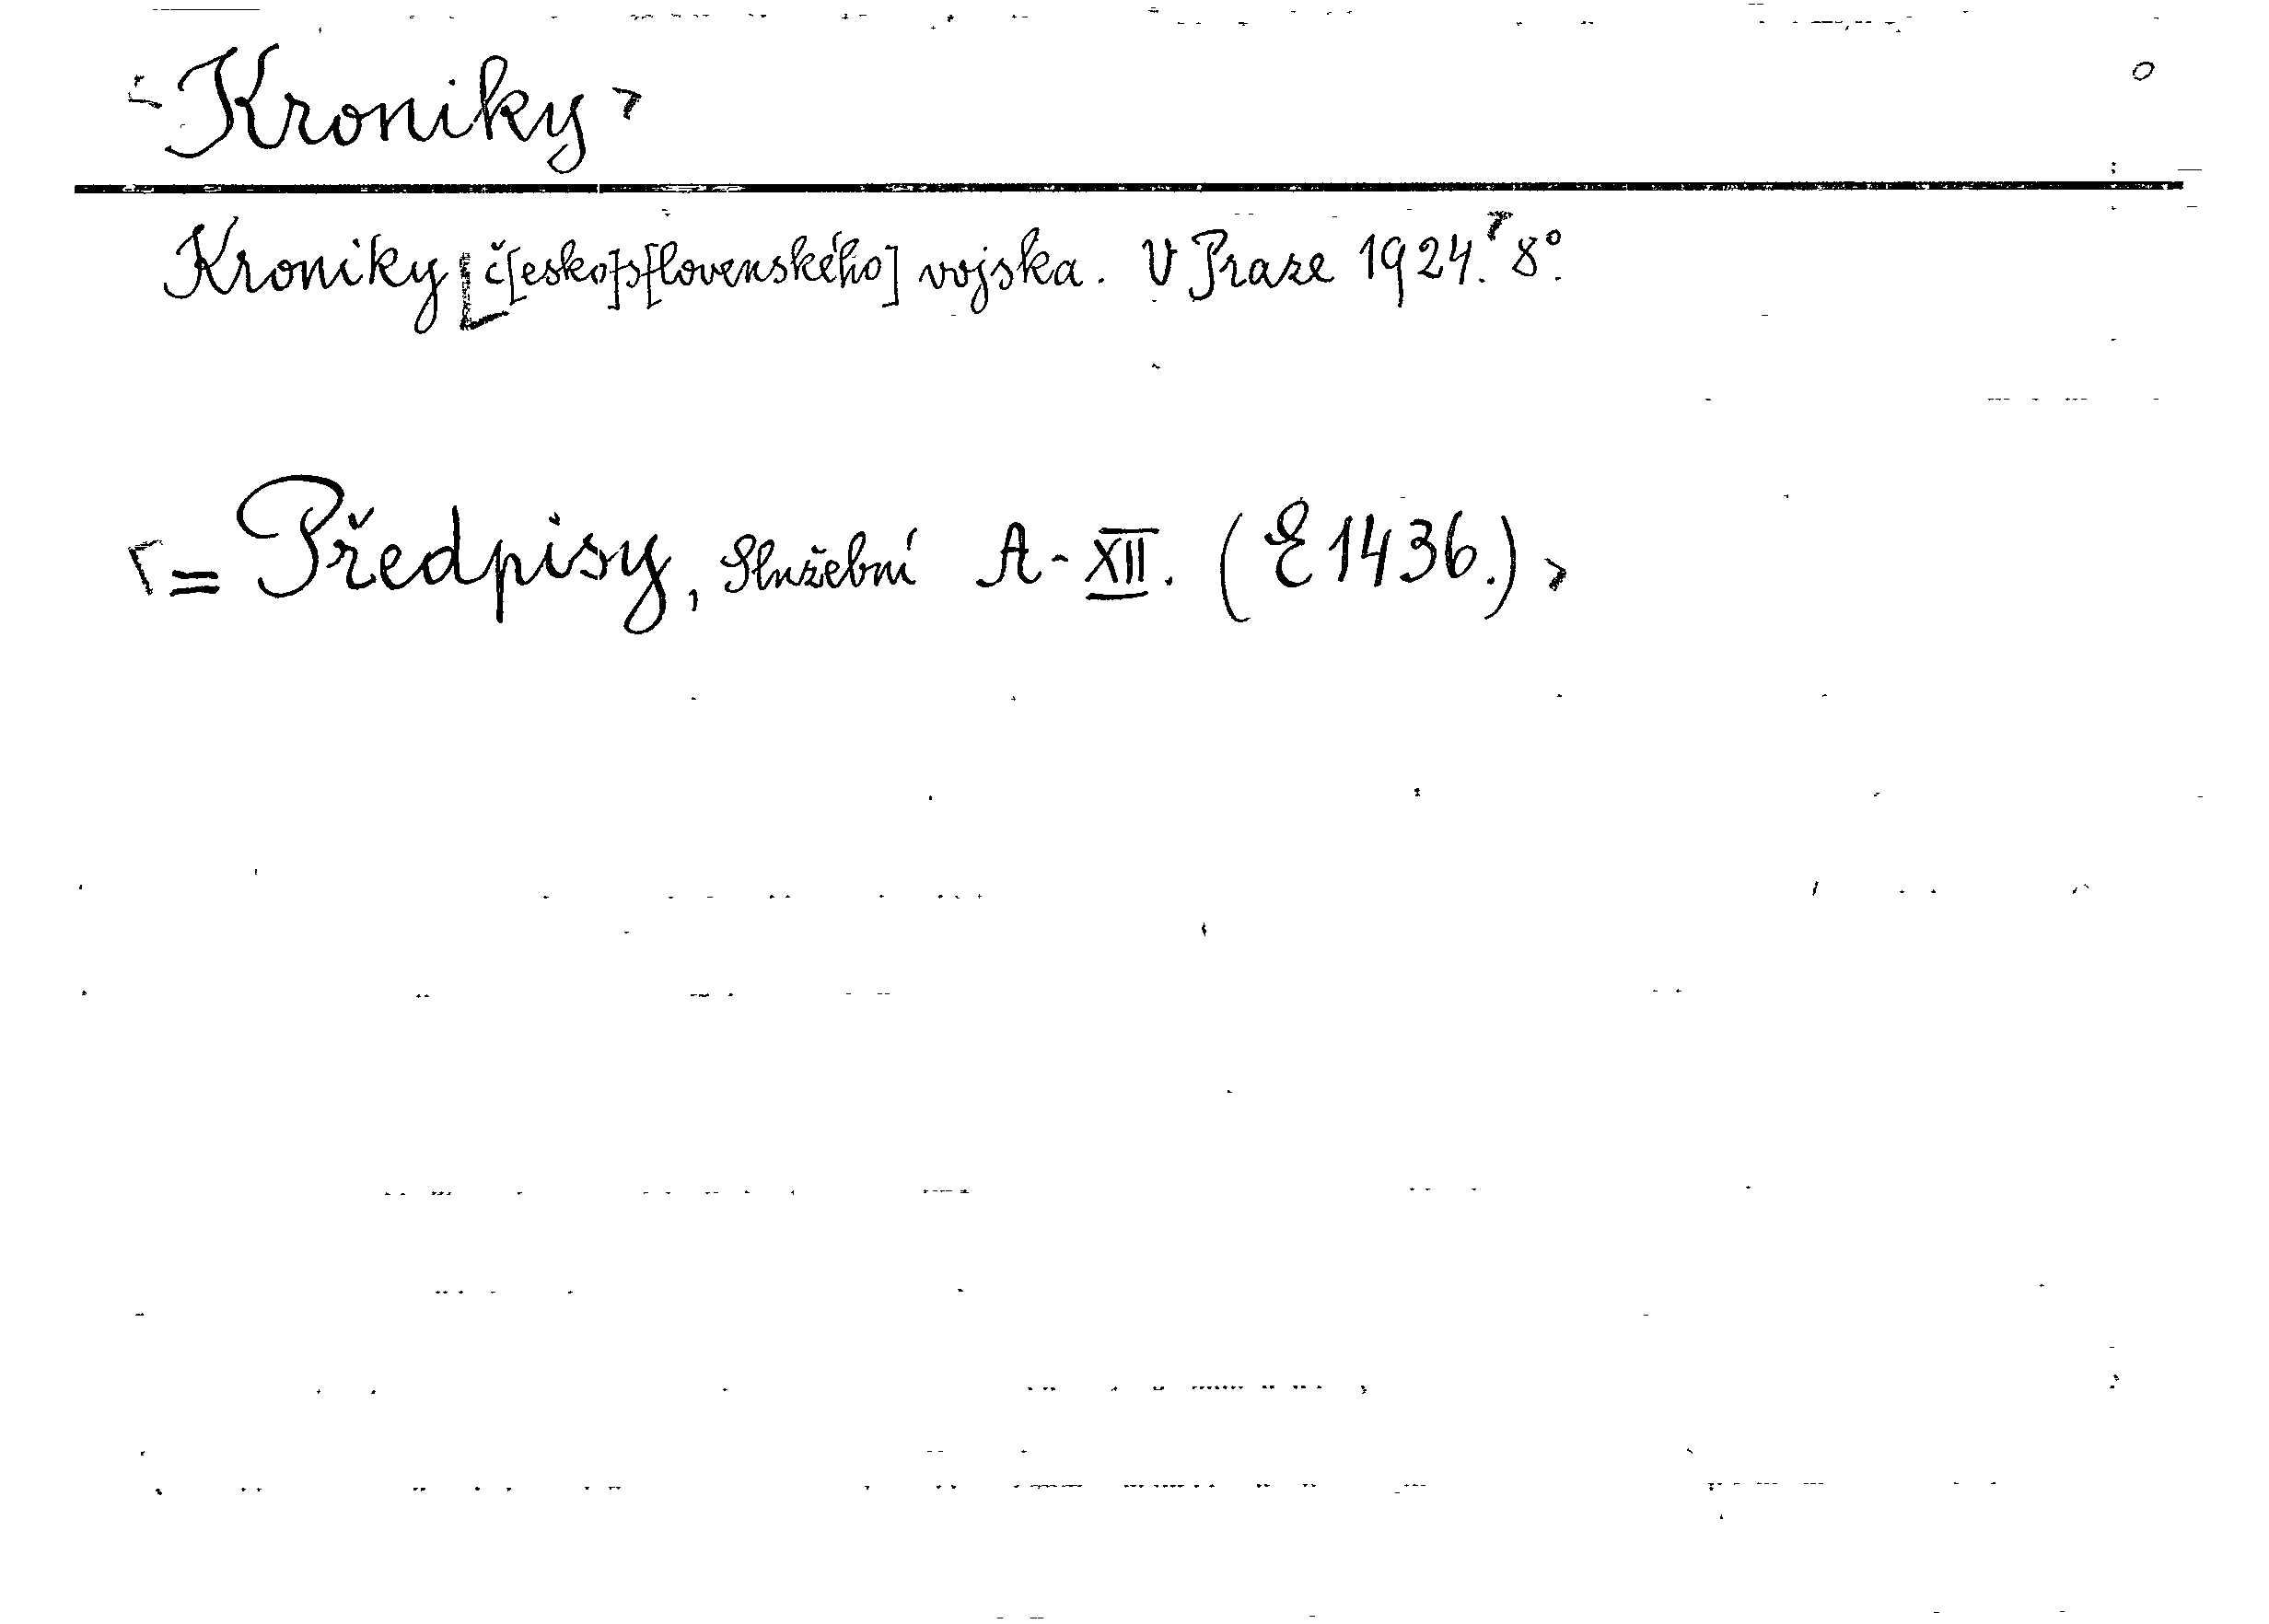 Kroniky
Kroniky č[esko]s[lovenského] vojska. V Praze 1924. 8°.
= Předpisy, Služební A-XII. (E 1436.)